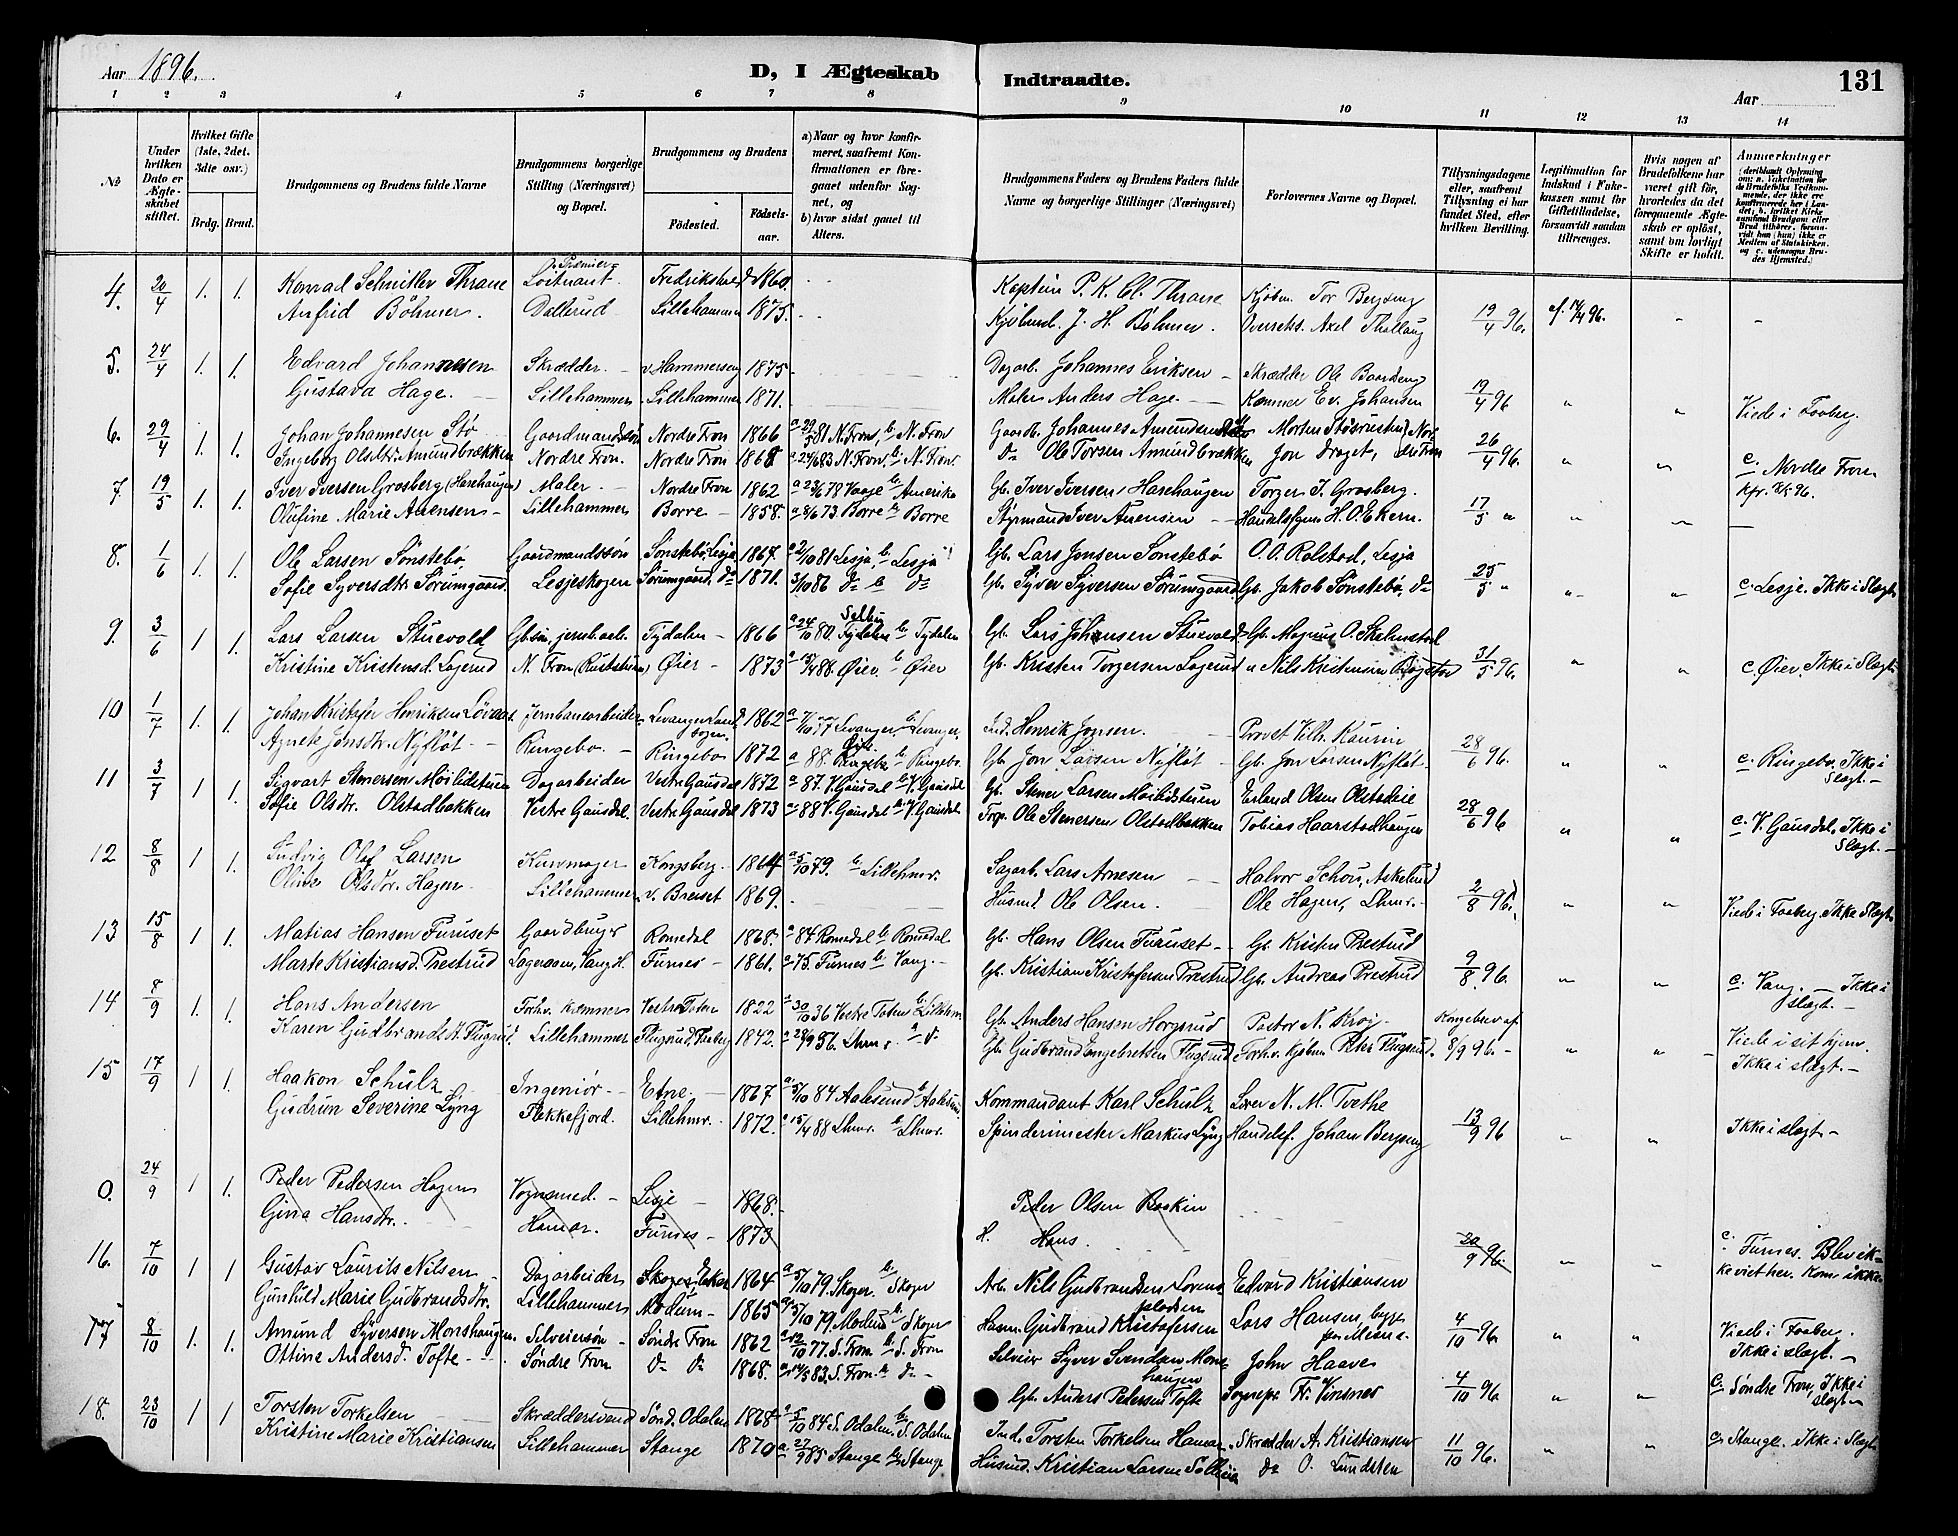 Aar 1896.
D, I Ægteskab Indtraadte.
Aar
131
1 2 3 4 5 6 7 8 9 10 11 12 13 14
№
Under hvilken Dato er Ægteskabet stiftet.
Hvilket Gifte (1ste, 2det, 3die osv.)
Brdg. Brud.
Brudgommens og Brudens fulde Navne
Brudgommens borgerlige Stilling (Næringsvei) og Bopæl.
Brudgommens og Brudens
Födested. Födselsaar.
a) Naar og hvor konfirmeret, saafremt Konfirmationen er foregaaet udenfor Sognet, og
b) hvor sidst gaaet til Alters.
Brudgommens Faders og Brudens Faders fulde Navne og borgerlige Stillinger (Næringsvei)
Forlovernes Navne og Bopæl.
Tillysningsdagene eller, saafremt Tillysning ei har fundet Sted, efter hvilken Bevilling.
Legitimation for Indskud i Enkekassen samt for Giftetilladelse, forsaavidt saadan tiltrænges.
Hvis nogen af Brudefolkene har været gift før, hvorledes da det foregaaende Ægteskab er oplöst, samt om lovligt Skifte er holdt.
Anmærkninger
4. 20/4 1. 1. Konrad Schnitler Thrane Premier Löitnant. 1860. Kaptein P. K. Cl. Thrane Kjøbm. Tor Bergseng
Anfrid Böhmer. Dallerud Lillehammer 1875. Kjöbmd. J. H. Böhmer. Axel Thallaug 19/4 96.
5. 24/4 1. 1. Edvard Johannesen Skrædder. v. Hammerseng 1875 Dagarb. Johannes Eriksen Skrædder Ole Baardseng
Gustava Hage. Lillehammer Lillehammer 1871. Maler Anders Hage. Kæmner Ev. Johansen 19/4 96 Viede i Faaberg.
6. 29/4 1. 1. Johan Johannesen Stö Gaardmandssön Nordre Fron 1866 a 29/5 81 N. Fron, b. N. Fron Gaardb. Johannes Amundsen Morten
Ingeborg Olsdtr. Amundbrækken Nordre Fron. Nordre Fron 1868 a 24/6 83 N. Fron. b. N. Fron. Do Ole Torsen Amundbrækken Jon Draget, 26/4 96. c. Nordre Fron
7. 19/5 1. 1. Iver Iversen Grosberg (Harehaugen) Maler Nordre Fron 1862 a 23/6 78 Vaage b. Amerika Gb. Iver Iversen Harehaugen Torger I. Grosberg.
Olufine Marie Anensen Lillehammer Borre 1858. a 8/6 73. Borre b Borre Styrmand Iver Anensen Handelsfgm. H. O. Ekern. 17/5 "
8. 1/6 1. 1. Ole Larsen Sönstebö Gaardmandssön Sönstebö, Lesja 1864. a 2/10 81 Lesja, b. Lesja Gb. Lars Jonsen Sönstebö O. O. Rolstad, Lesja
Sofie Syversdtr. Sörumgaard. Lesjeskogen Sörumgaard, do 1871. 3/10 86 do b do Gb. Syver Syversen Sörumgaard Gb. Jakob Sönstebö, do 25/5 " c. Lesje. Ikke i Slægt.
9. 3/6 1 1. Lars Larsen Stuevold Gbsön, jernb.arb. Tydalen 1866 a 24/10 80. Selbu Tydalen b. Tydalen Gb. Lars Johnsen Stuevold Gb. Magnus O. Stalmstad
Kristine Kristensd. Lagerud N. Fron Öier 1873 88. Öier. b. Öier Gb. Kristen Torgersen Lagerud Nils Kristensen 31/5 96. c. Öier. Ikke i Slægt.
10 1/7 1. 1. Johan Kristofer Henriksen Lövaas. Jernbanearbeider Levanger Landsogn. 1862 a 7/10 77 Levanger b. Levanger. Ind. Henrik Jonsen. Provst Vilh. Kaurin
Agnete Jonsdtr. Nyflöt Ringebo. Ringebo 1872 a 88 Ringebo b. Ringebo. Gb. Jon Larsen Nyflöt Gb. Jon Larsen Nyflöt. 28/6 96. c. Ringebo. Ikke i Slægt.
11 3/7 1 1. Sigvart Stenersen Moilidstuen Dagarbeider Vestre Gausdal 1872 a 87. V. Gausdal b V. Gausdal Gb. Stener Larsen Moilidstuen Erland Olsen Olstadeie
Sofie Olsdtr. Olstadbakken Vestre Gausdal. Vestre Gausdal 1873 a 88 V. Gausdal b V. Gausdal Torp. Ole Stenersen Olstadbakken Tobias Haarstadhaugen 28/6 96 c. V. Gausdal. Ikke i Slægt.
12 8/8 1 1. Ludvig Olaf Larsen Kurvmager Kongsberg. 1864 a 5/10 79. b. Lillehmr. Sagarb. Lars Arnesen Halvor Schou, Askelund
Oline Olsdtr. Hagen Lillehammer v. Breiset 1869. Husmd. Ole Olsen. Ole Hagen, Lhmr. 2/8 96. Viede i Faaberg. Ikke Slægt
13 15/8 1 1. Matias Hansen Furuset Gaardbruger Romedal 1868. a 84 Romedal b Romedal Gb. Hans Olsen Furuset Gb. Kristen Prestrud
Marte Kristiansd. Prestrud Furnes 1861. a 75. Furnes b Vang. Gb. Kristian Kristofersen Prestrud Gb. Andreas Prestrud 9/8 96. c. Vang. Ikke i slægt.
14 8/9 1. 1. Hans Andersen Forhv. kæmner Vestre Toten 1822 a 30/10 36 Vestre Toten b. Lillehm. Gb. Anders Hansen Horgsrud Pastor N. Krog. Kongebrev af
Karen Gudbrandsdtr. Flugsrud. Lillehammer Flugsrud, Faaberg 1842. a 28/9 56. Lhmr. do Gb. Gudbrand Engebretsen Flugsrud Forhv. Kjöbm. Peter Flugsrud. 8/9 96. Viede i sit hjem. Ikke i slægt.
15 17/9 1 1. Haakon Schulz Ingeniör Etne. 1867 a 5/10 84 Aalesund b Aalesund. Kommandant Karl Schulz Lærer N. M. Tvethe
Gudrun Severine Lyng Flekkefjord. Lillehmr. 1872. a 15/4 88 Lhmr. b Lhmr. Spinderimester Markus Lyng Handelsf. Johan Bergseng 13/9 96 Ikke i slægt
0. 24/9 1 1. Peder Pedersen Hagen Vognsmed. Lesje 1868. Peder Olsen Baskin
Gina Hansdtr. Hamar. Furnes 1873 H. Hans. 20/9 96. c. Furnes. Blev ikke viet her. Kom ikke.
16. 7/10 1 1 Gustav Laurits Nilsen Dagarbeider Skoger 1864 a 5/10 79. Skoger b Skoger Arb. Nils Gudbrandsen Lorensplassen Edvard Kristiansen
Gunhild Marie Gudbrandsdtr. Lillehammer Modum 1865 a 5/10 79. Modum b Skoger Husm. Gudbrand Kristofersen Lars Hansen, 4/10 96. Viede i Faaberg. Ikke i slægt.
17 8/10 1. 1. Amund Syversen Monshaugen. Selveiersön Söndre Fron 1862 a 12/10 77. S. Fron b. S. Fron Selveier Syver Svendsen Monshaugen John Haave
Ottine Andersd. Tofte Söndre Fron do do 1868. a 14/5 83. S. Fron b do Gb. Anders Pedersen Tofte Sognepr. Fr. Vinsnes 4/10 96. c. Söndre Fron, Ikke i slægt.
18. 23/10 1 1 Torsten Torkelsen Skræddersvend Sönd. Odalen 1868 a 5/10 84 S. Odalen. b. S. Odalen Ind. Torsten Torkelsen Hamar Skrædder A. Kristiansen
Kristine Marie Kristiansen Lillehammer Stange 1870 a 27/9 85 Stange b. Stange Husmd. Kristian Larsen Do O. Lundsten 11/10 96. c. Stange. Ikke i Slægt